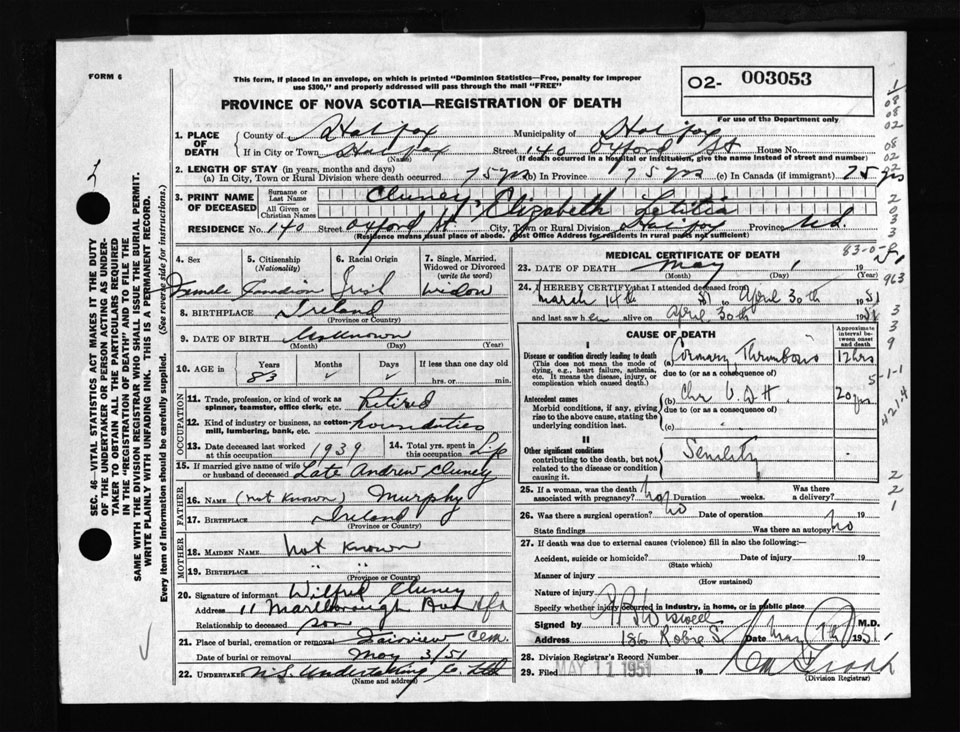 FORM 6
This form, if placed in an envelope, on which is printed "Dominion Statistics—Free, penalty for improper
use $300," and properly addressed will pass through the mail "FREE"
O2- 003053
For use of the Department only
PROVINCE OF NOVA SCOTIA—REGISTRATION OF DEATH
1. PLACE OF DEATH
County of Halifax Municipality of Halifax
If in City or Town Halifax Street 140 Oxford St House No.
(Name) (If death occurred in a hospital or institution, give the name instead of street and number)
2. LENGTH OF STAY (in years, months and days)
(a) In City, Town or Rural Division where death occurred. 75 yrs (b) In Province 75 yrs (c) In Canada (if immigrant) 75 yrs
3. PRINT NAME OF DECEASED
Surname or Last Name Cluney,
All Given or Christian Names Elizabeth Letitia
RESIDENCE No. 140 Street Oxford St City, Town or Rural Division Halifax Province N.S.
(Residence means usual place of abode. Post Office Address for residents in rural parts not sufficient)
4. Sex Female
5. Citizenship (Nationality) Canadian
6. Racial Origin Irish
7. Single, Married, Widowed or Divorced (write the word) Widow
8. BIRTHPLACE Ireland
(Province or Country)
9. DATE OF BIRTH Unknown
(Month) (Day) (Year)
10. AGE in Years 83 Months ✓ Days ✓ If less than one day old
hrs. or min.
OCCUPATION
11. Trade, profession, or kind of work as
spinner, teamster, office clerk, etc. Retired
12. Kind of industry or business, as cotton-
mill, lumbering, bank, etc. house duties
13. Date deceased last worked
at this occupation 1939
14. Total yrs. spent in
this occupation Life
15. If married give name of wife
or husband of deceased Late Andrew Cluney
FATHER
16. NAME (not known) Murphy
17. BIRTHPLACE Ireland
(Province or Country)
MOTHER
18. MAIDEN NAME not known
19. BIRTHPLACE " "
(Province or Country)
20. Signature of informant Wilfred Cluney
Address 11 Marlborough Ave Hfx
Relationship to deceased son
21. Place of burial, cremation or removal Fairview Cem.
Date of burial or removal May 3/51
22. UNDERTAKER N.S. Undertaking Co. Ltd
(Name and address)
MEDICAL CERTIFICATE OF DEATH
23. DATE OF DEATH May 1 19
(Month) (Day) (Year)
24. I HEREBY CERTIFY that I attended deceased from
March 14th 51 to April 30th 1951
and last saw her alive on April 30th 1951
CAUSE OF DEATH
Approximate interval between onset and death
I
Disease or condition directly leading to death (a) Coronary Thrombosis 12 hrs
(This does not mean the mode of
dying, e.g., heart failure, asthenia,
etc. It means the disease, injury, or
complication which caused death.)
due to (or as a consequence of)
Antecedent causes (b) Chr V.D.H. 20 yrs.
Morbid conditions, if any, giving
rise to the above cause, stating the
underlying condition last.
due to (or as a consequence of)
(c)
II
Other significant conditions Senility
contributing to the death, but not
related to the disease or condition
causing it.
25. If a woman, was the death
associated with pregnancy? no Duration weeks. Was there
a delivery?
26. Was there a surgical operation? no Date of operation 19
State findings Was there an autopsy? no
27. If death was due to external causes (violence) fill in also the following:—
Accident, suicide or homicide? Date of injury 19
(State which)
Manner of injury
(How sustained)
Nature of injury
Specify whether injury occurred in industry, in home, or in public place
Signed by M.D.
Address 186 Robie St Date May 7th 1951
28. Division Registrar's Record Number
29. Filed MAY 11 1951 29.
(Division Registrar)
SEC. 46—VITAL STATISTICS ACT MAKES IT THE DUTY
OF THE UNDERTAKER OR PERSON ACTING AS UNDER-
TAKER TO OBTAIN ALL THE PARTICULARS REQUIRED
IN THE "REGISTRATION OF DEATH" AND TO FILE THE
SAME WITH THE DIVISION REGISTRAR WHO SHALL ISSUE THE BURIAL PERMIT.
WRITE PLAINLY WITH UNFADING INK. THIS IS A PERMANENT RECORD.
Every item of information should be carefully supplied. (See reverse side for instructions.)
1
08
08
02
08
02
02
2
0
3
3
963
3
3
9
5-1-1
421.4
2
2
1